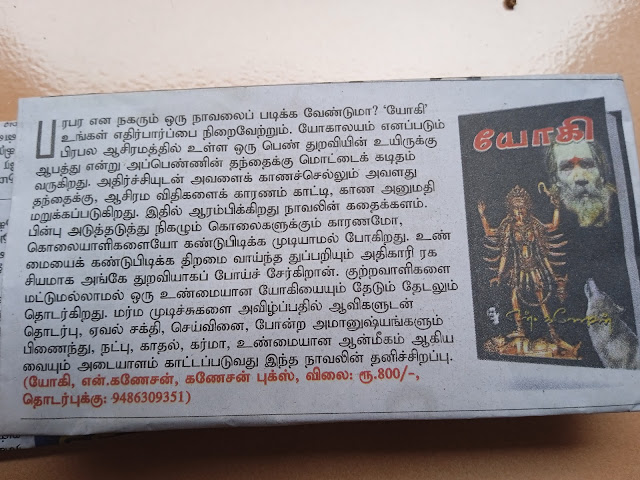 பரபர என நகரும் ஒரு நாவலைப் படிக்க வேண்டுமா? 'யோகி'
உங்கள் எதிர்பார்ப்பை நிறைவேற்றும். யோகாலயம் எனப்படும்
பிரபல ஆசிரமத்தில் உள்ள ஒரு பெண் துறவியின் உயிருக்கு
ஆபத்து என்று அப்பெண்ணின் தந்தைக்கு மொட்டைக் கடிதம்
வருகிறது. அதிர்ச்சியுடன் அவளைக் காணச்செல்லும் அவளது
தந்தைக்கு, ஆசிரம விதிகளைக் காரணம் காட்டி, காண அனுமதி
மறுக்கப்படுகிறது. இதில் ஆரம்பிக்கிறது நாவலின் கதைக்களம்.
பின்பு அடுத்தடுத்து நிகழும் கொலைகளுக்கும் காரணமோ,
கொலையாளிகளையோ கண்டுபிடிக்க முடியாமல் போகிறது. உண்
மையைக் கண்டுபிடிக்க திறமை வாய்ந்த துப்பறியும் அதிகாரி ரக
சியமாக அங்கே துறவியாகப் போய்ச் சேர்கிறான். குற்றவாளிகளை
மட்டுமல்லாமல் ஒரு உண்மையான யோகியையும் தேடும் தேடலும்
தொடர்கிறது. மர்ம முடிச்சுகளை அவிழ்ப்பதில் ஆவிகளுடன்
தொடர்பு, ஏவல் சக்தி, செய்வினை, போன்ற அமானுஷ்யங்களும்
பிணைந்து, நட்பு, காதல், கர்மா, உண்மையான ஆன்மீகம் ஆகிய
வையும் அடையாளம் காட்டப்படுவது இந்த நாவலின் தனிச்சிறப்பு.
(யோகி, என்.கணேசன், கணேசன் புக்ஸ், விலை: ரூ.800/-,
தொடர்புக்கு: 9486309351)
யோகி